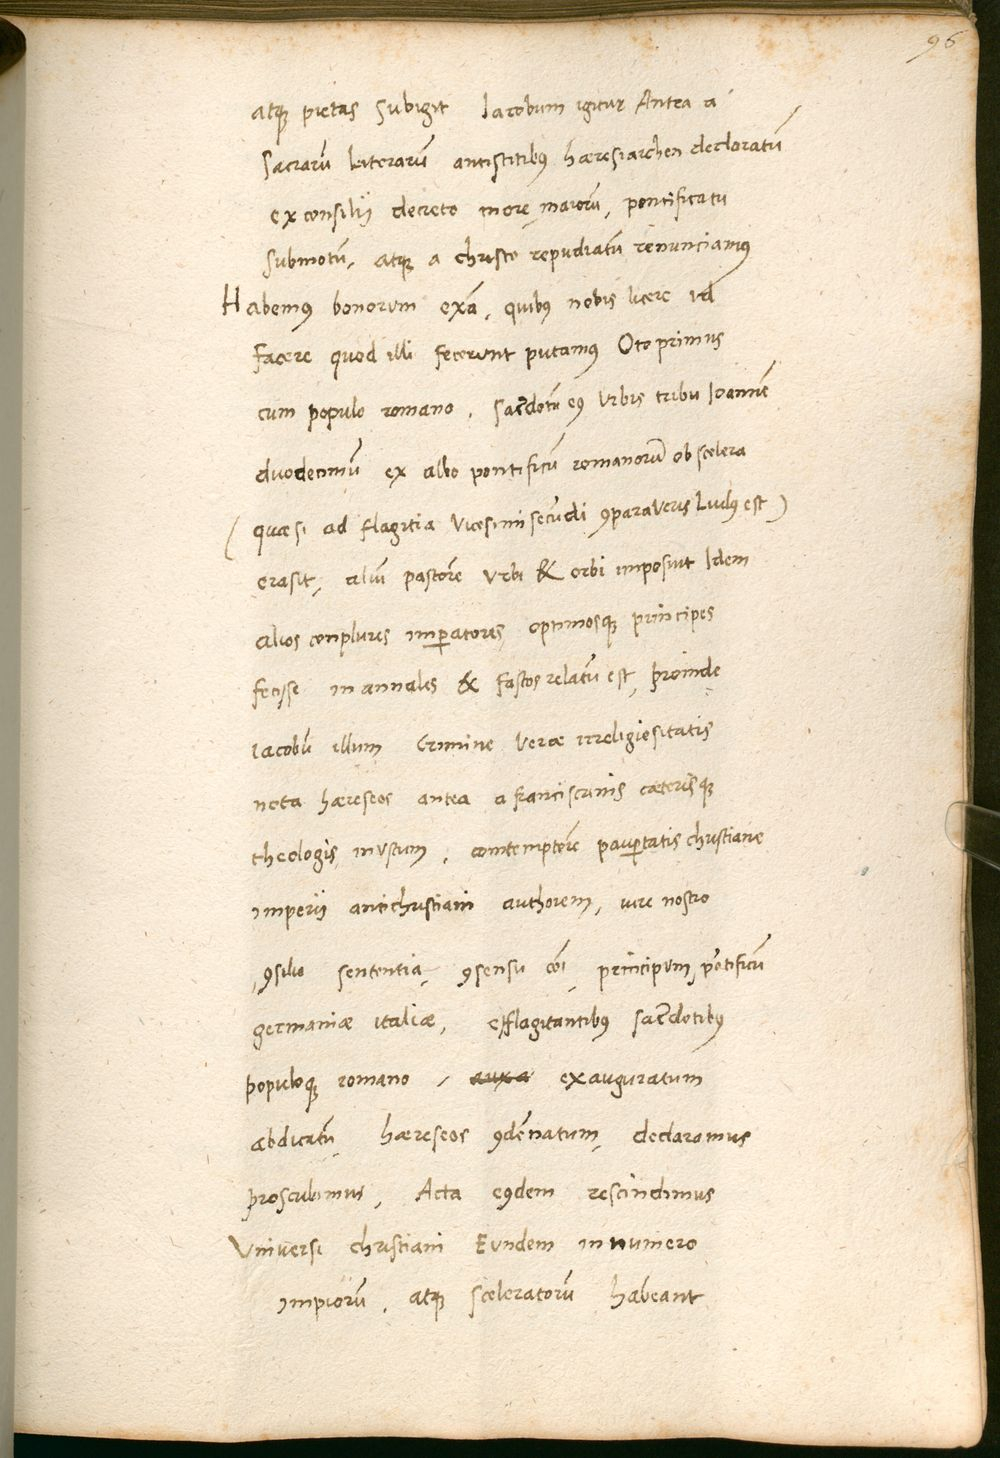 96
atq pietas subigit Iacobum igitur Antea a
sacrarū literarū antistitibus hæresiarchen declaratū
ex consilij decreto more maiorū, pontificatu
submotū, atq a christo repudiatū renunciamus
Habemus bonorum exā, quibus nobis licere id
facere quod illi fecerunt putamus Oto primus
cum populo romano, sac̄dotū eius Urbis tribu Ioannē
duodecimū ex albo pontificū romanorū ob scelera
(quæ si ad flagitia vicesimi secūdi ꝯparaveris Ludus est)
erasit, aliū pastorē Urbi & orbi imposuit Idem
alios conplures imꝑatores optimosq principes
fecisse in annales & fastos relatū est, proinde
Iacobū illum crimine veræ irreligiositatis
nota hæreseos antea a franciscanis cæterisq
theologis inustum, comtemptorē pauꝑtatis christianæ
imperij antichristiani authorem, iure nostro
ꝯsilio sententia, ꝯsensu cōi principum pōtificū
germaniæ italiæ, efflagitantibus sac̄dotibus
populoq romano, auxa exauguratum
abdicatū hæreseos ꝯdēnatum, declaramus
proscribimus, Acta eiusdem rescindimus
Universi christiani Eundem in numero
impiorū, atq sceleratorū habeant